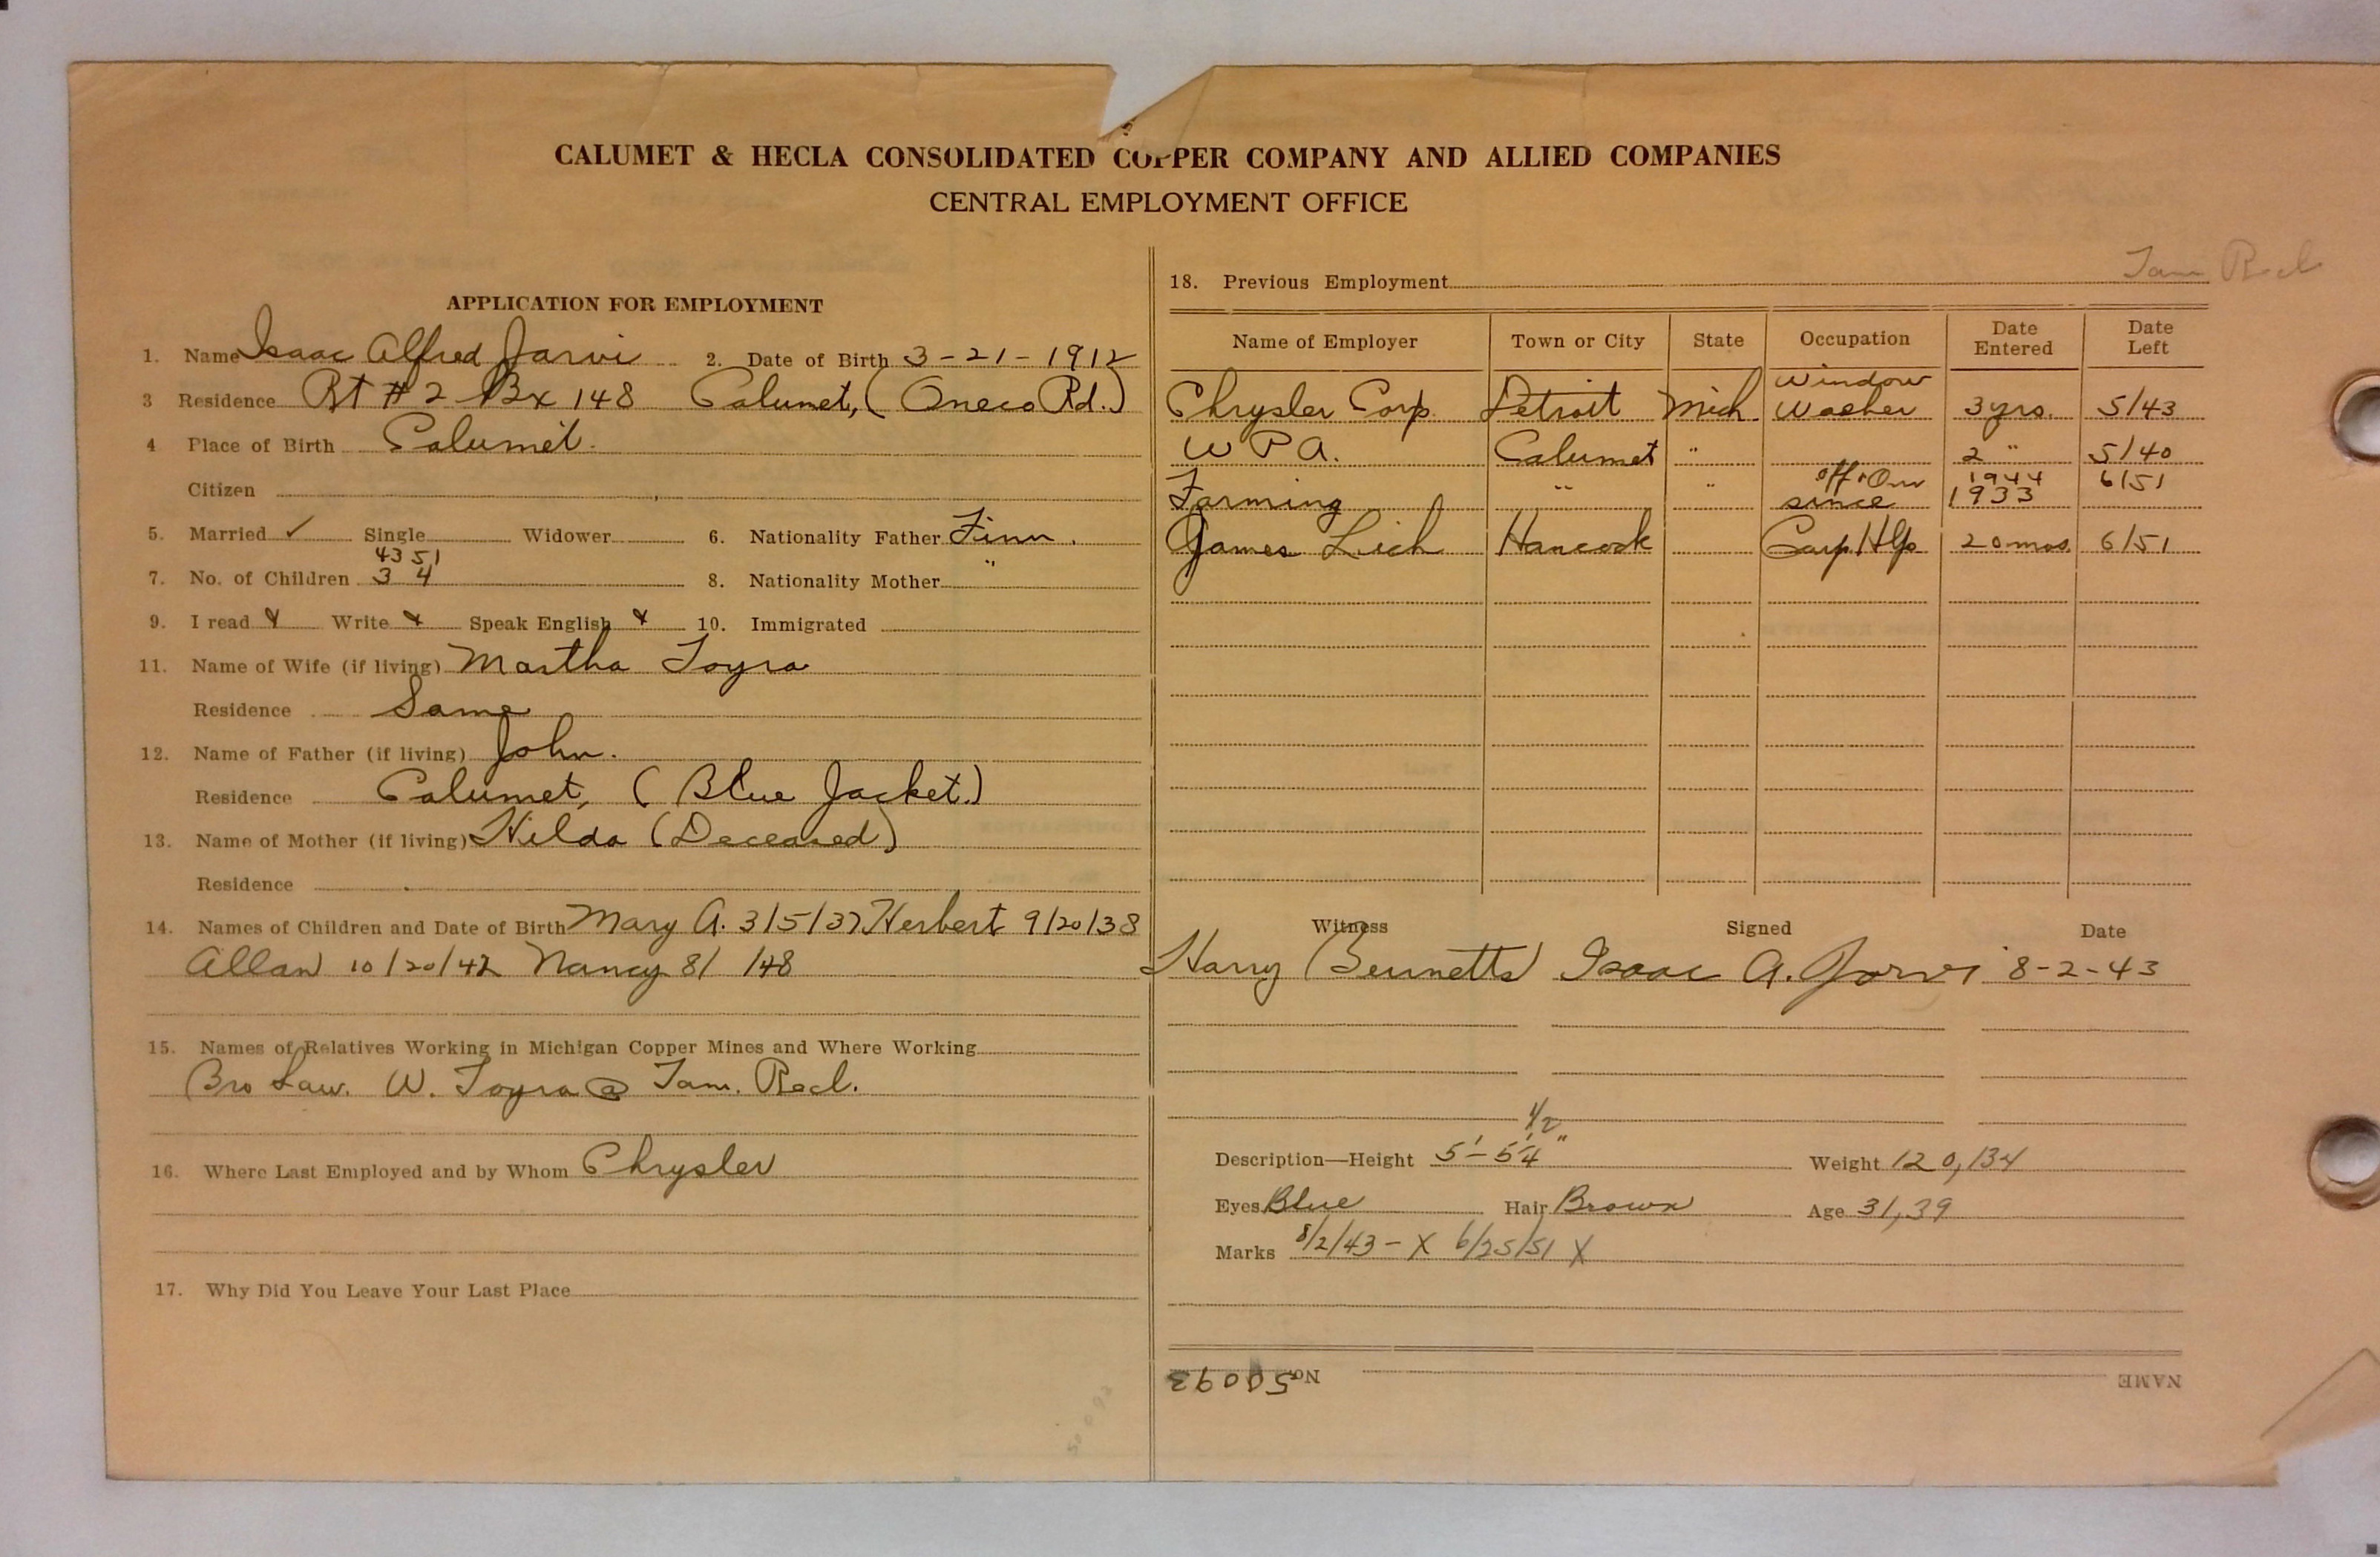 CALUMET & HECLA CONSOLIDATED COPPER COMPANY AND ALLIED COMPANIES
CENTRAL EMPLOYMENT OFFICE
APPLICATION FOR EMPLOYMENT
1. Name Isaac Alfred Jarvi 2. Date of Birth 3-21-1912
3 Residence Rt #2 Bx 148 Calumet, (Oneco Rd.)
4 Place of Birth Calumet.
Citizen
5. Married ✓ Single Widower 6. Nationality Father Finn.
43 51
7. No. of Children 3 4 8. Nationality Mother "
9. I read Write Speak English 10. Immigrated
11. Name of Wife (if living) Martha Toyra
Residence Same
12. Name of Father (if living) John.
Residence Calumet, (Blue Jacket.)
13. Name of Mother (if living) Hilda (Deceased)
Residence
14. Names of Children and Date of Birth Mary A. 3/5/37 Herbert 9/20/38
Allan 10/20/42 Nancy 8/ /48
15. Names of Relatives Working in Michigan Copper Mines and Where Working
Bro Law. W. Toyra @ Tam. Recl.
16. Where Last Employed and by Whom Chrysler
17. Why Did You Leave Your Last Place
Tam Recl
18. Previous Employment
Name of Employer Town or City State Occupation Date Entered Date Left
Chrysler Corp. Detroit Mich Window Washer 3 yrs. 5/43
W P A. Calumet " 2 " 5/40
Farming " " off & on since 1944 1933 6/51
James Lich Hancock Carp Hlp 20 mos. 6/51
Witness Signed Date
Harry Bennetts Isaac A. Jarvi 8-2-43
1/2
Description—Height 5'-5 1/4" Weight 120, 134
Eyes Blue Hair Brown Age 31, 39
Marks 8/2/43 - X 6/25/51 X
NAME No. 50093
50093